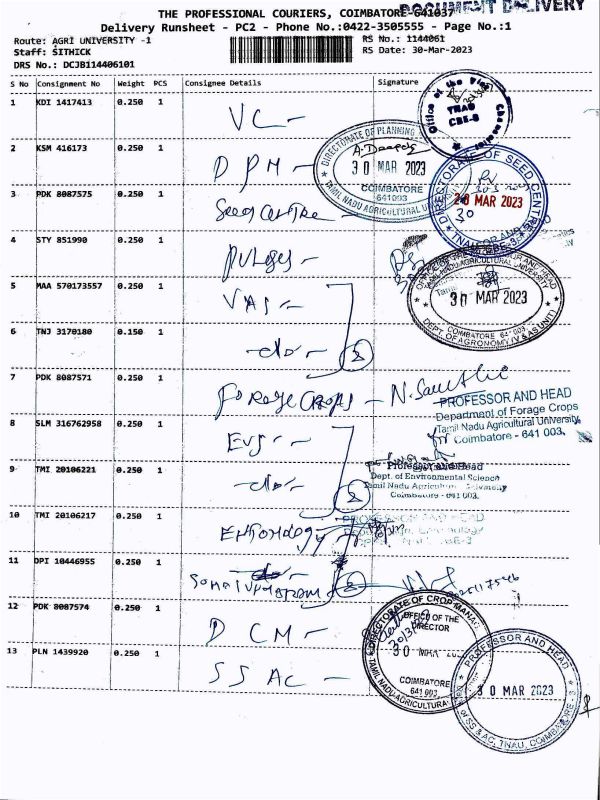 DOCUMENT DELIVERY
THE PROFESSIONAL COURIERS, COIMBATORE-641037
Delivery Runsheet - PC2 - Phone No.:0422-3505555 - Page No.:1
Route: AGRI UNIVERSITY -1
RS No.: 1144061
Staff: SITHICK
RS Date: 30-Mar-2023
DRS No.: DCJB114406101
S No Consignment No Weight PCS Consignee Details Signature
1 KDI 1417413 0.250 1 VC -
Office of the Vice Chancellor
TNAU
CBE-3
2 KSM 416173 0.250 1 DPM -
DIRECTORATE OF PLANNING
30 MAR 2023
COIMBATORE
641003
TAMIL NADU AGRICULTURAL
3 PDK 8087575 0.250 1 Seed Centre -
DIRECTORATE OF SEED CENTRE
MAR 2023
30
TNAU
4 STY 851990 0.250 1 Pulses -
PROFESSOR AND HEAD
TAMIL NADU AGRICULTURAL UNIVERSITY
30 MAR 2023
COIMBATORE 641 003.
DEPT. OF AGRONOMY
5 MAA 570173557 0.250 1 VAS -
6 TNJ 3170180 0.150 1 -do-
7 PDK 8087571 0.250 1 Forage Crops -
PROFESSOR AND HEAD
Department of Forage Crops
Tamil Nadu Agricultural University
Coimbatore - 641 003.
8 SLM 316762958 0.250 1 EVS -
Professor and Head
Dept. of Environmental Science
Tamil Nadu Agricultural University
Coimbatore - 641 003.
9 TMI 20106221 0.250 1 -do-
10 TMI 20106217 0.250 1 Entomology
PROFESSOR AND HEAD
11 DPI 10446955 0.250 1
12 PDK 8087574 0.250 1 DCM -
OFFICE OF THE
DIRECTOR
30 MAR
COIMBATORE
641 003
TAMIL NADU AGRICULTURAL
13 PLN 1439920 0.250 1 SSAC -
PROFESSOR AND HEAD
30 MAR 2023
SS & AC, TNAU, COIMBATORE - 3